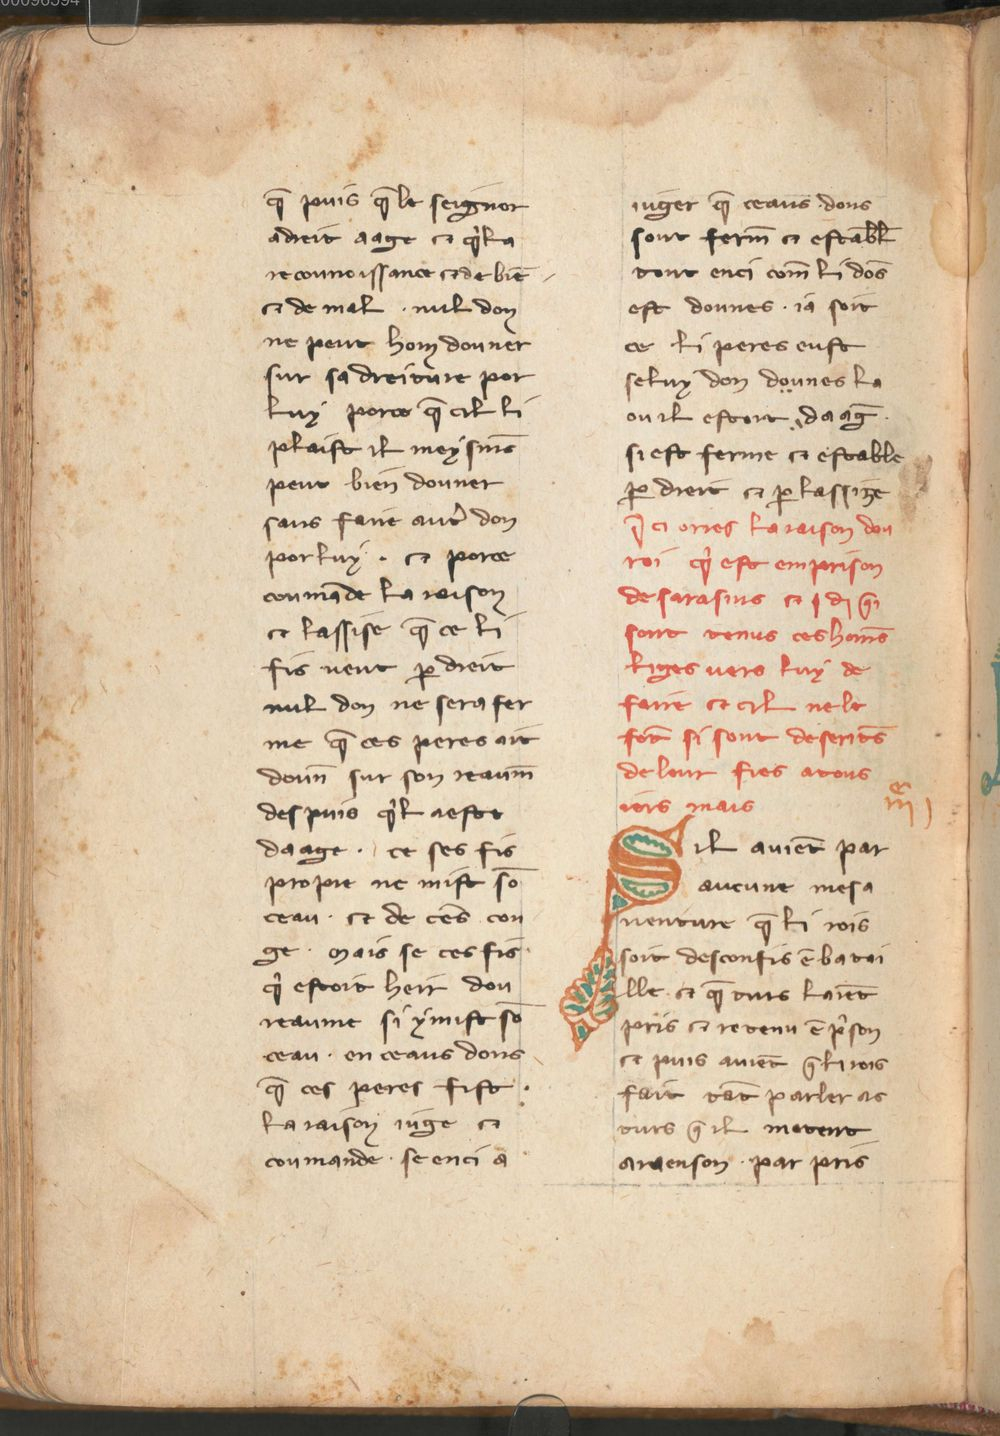 q̄ puis q̄ le seignor
adreit aage ⁊ q̓ la
reconnoissance ⁊ de biē
⁊ de mal · nul don
ne peut hom donner
sur sa dreiture por
luy porce q̄ cil li
plaist il meysmes
peut bien donner
sans faire autr̄ don
por luy · ⁊ porce
coumāde la raison
⁊ lassise q̄ ce li
fis veut ꝑ dreit
nul don ne sera fer
me q̄ ces peres ait
doun̄ sur son reaum̄
despuis q̓l aeste
daage · ce ses fis
propre ne mist sō
ceau · ⁊ de cēs con
ge · mais se ces fis
q̓ estoit heir dou
reaume si y mist sō
ceau · en ceaus dons
q̄ ces peres fist ·
la raison iuge ⁊
coumande · se enci a
iuger q̄ ceaus dons
sont ferm̄ ⁊ establ̄
tout enci com̄ li dōs
est dounes · ia soit
ce li peres eust
seluy don dounes la
ou il estoit daaḡ ·
si est ferme ⁊ estable
ꝑ dreit ⁊ ꝑ lassize
ci orres la raison dou
roi q̓ est em prison
de sarasins ⁊
sont tenus ces homēs
liges vers luy de
faire ⁊ cil ne le
fōt si sont deseritēs
de leur fies a tous
iors mais
Sil auiēt par
aucune mesa
uenture q̄ li rois
soit desconfis ē batai
lle · ⁊ q̄ turs laiēt
pris ⁊ retenu ē p̓son
⁊ puis auiēt q̄ li rois
fait tāt parler as
turs q̄ il metent
a raenson · par pris